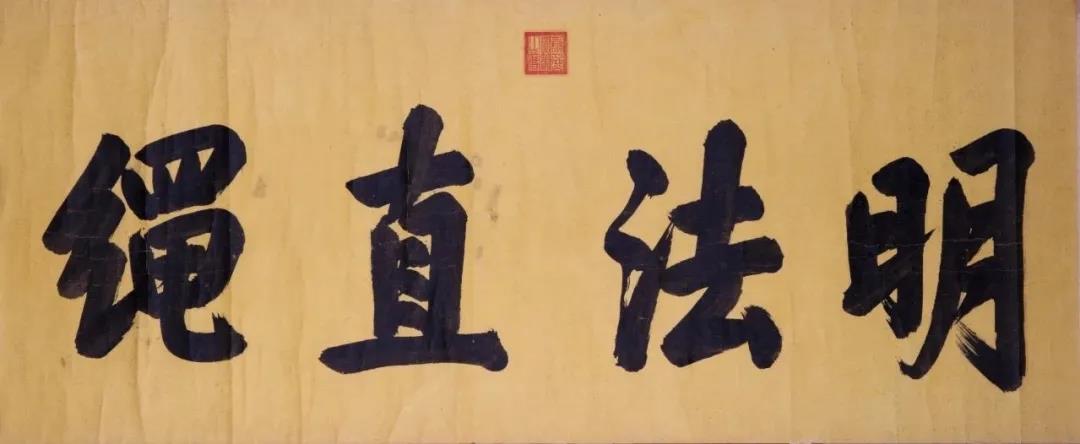 明法直繩